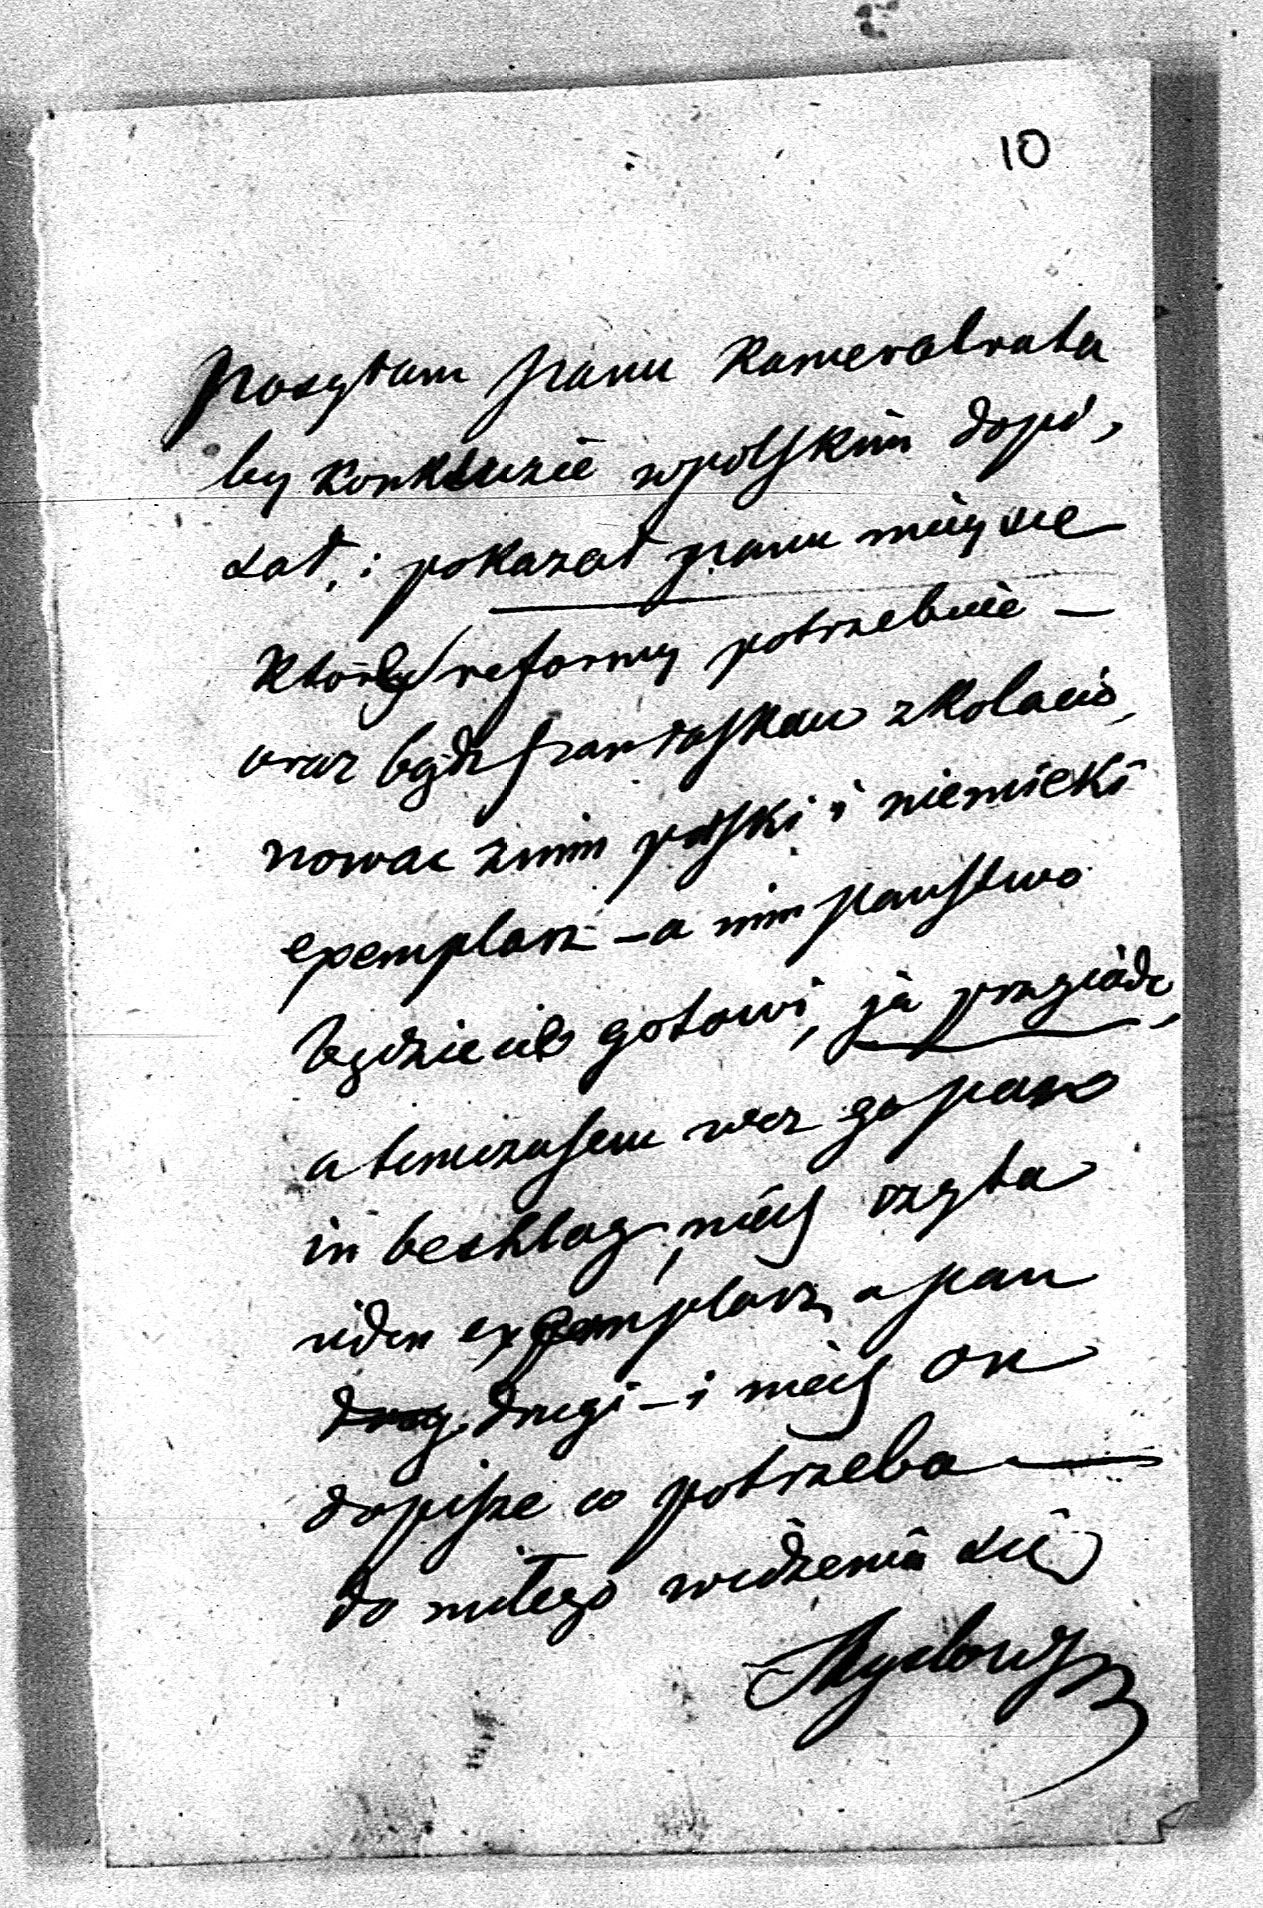 10
Posyłam panu Kameralrata
by konkluzie wpolskim dopi,
sał, i pokazał panu mieysce
ktorby reformy potrzebuie —
oraz bądz pan łaskaw zkolacio,
nowac znim polski i niemiecki
exemplarz — a nim państwo
będziecie gotowi, ja przyiade,
a tymczasem wez go pan
in beschlag, niech czyta
ieden exemplarz, a pan
drugi — i niech on
dopisze co potrzeba —
do miłego widzenia się